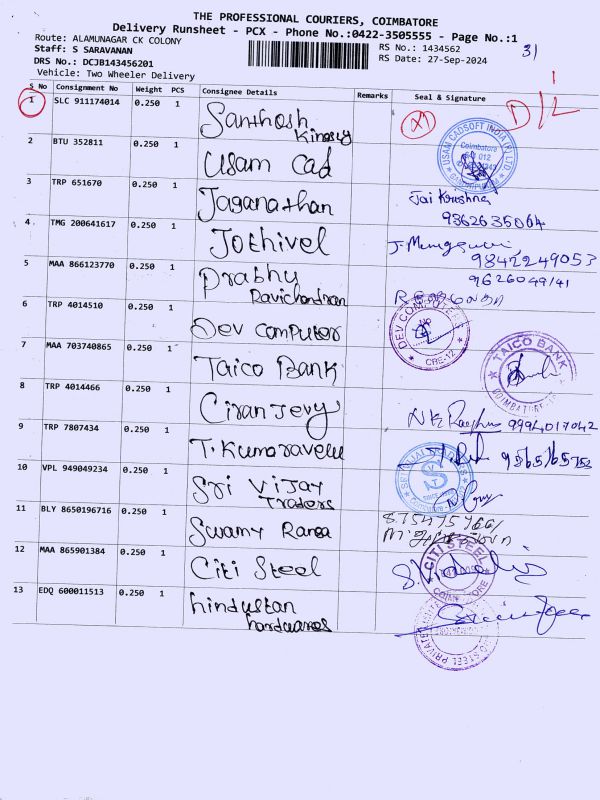 THE PROFESSIONAL COURIERS, COIMBATORE
Delivery Runsheet - PCX - Phone No.:0422-3505555 - Page No.:1
Route: ALAMUNAGAR CK COLONY
RS No.: 1434562
31
Staff: S SARAVANAN
RS Date: 27-Sep-2024
DRS No.: DCJB143456201
Vehicle: Two Wheeler Delivery
S No Consignment No Weight PCS Consignee Details Remarks Seal & Signature
D/L
1 SLC 911174014 0.250 1 Santhosh
2 BTU 352811 0.250 1 Usam Cad
USAM CADSOFT INDIA (P) LTD
Coimbatore
3 TRP 651670 0.250 1 Jaganathan Jai Krishna
9362635064
4 TMG 200641617 0.250 1 Jothivel
9842249053
5 MAA 866123770 0.250 1 Prabhu
Ravichandran
9626049141
6 TRP 4014510 0.250 1 Dev Computer
DEV COMPUTER
CBE-12
7 MAA 703740865 0.250 1 Taico Bank
TAICO BANK
COIMBATORE
8 TRP 4014466 0.250 1 Ciranjevy 9994017042
9 TRP 7807434 0.250 1 T. Kumaravelu
10 VPL 949049234 0.250 1 Sri Vijay
Traders
11 BLY 8650196716 0.250 1 Swamy
12 MAA 865901384 0.250 1 Citi Steel
CITI STEEL
13 EDQ 600011513 0.250 1 hindustan
hardwares